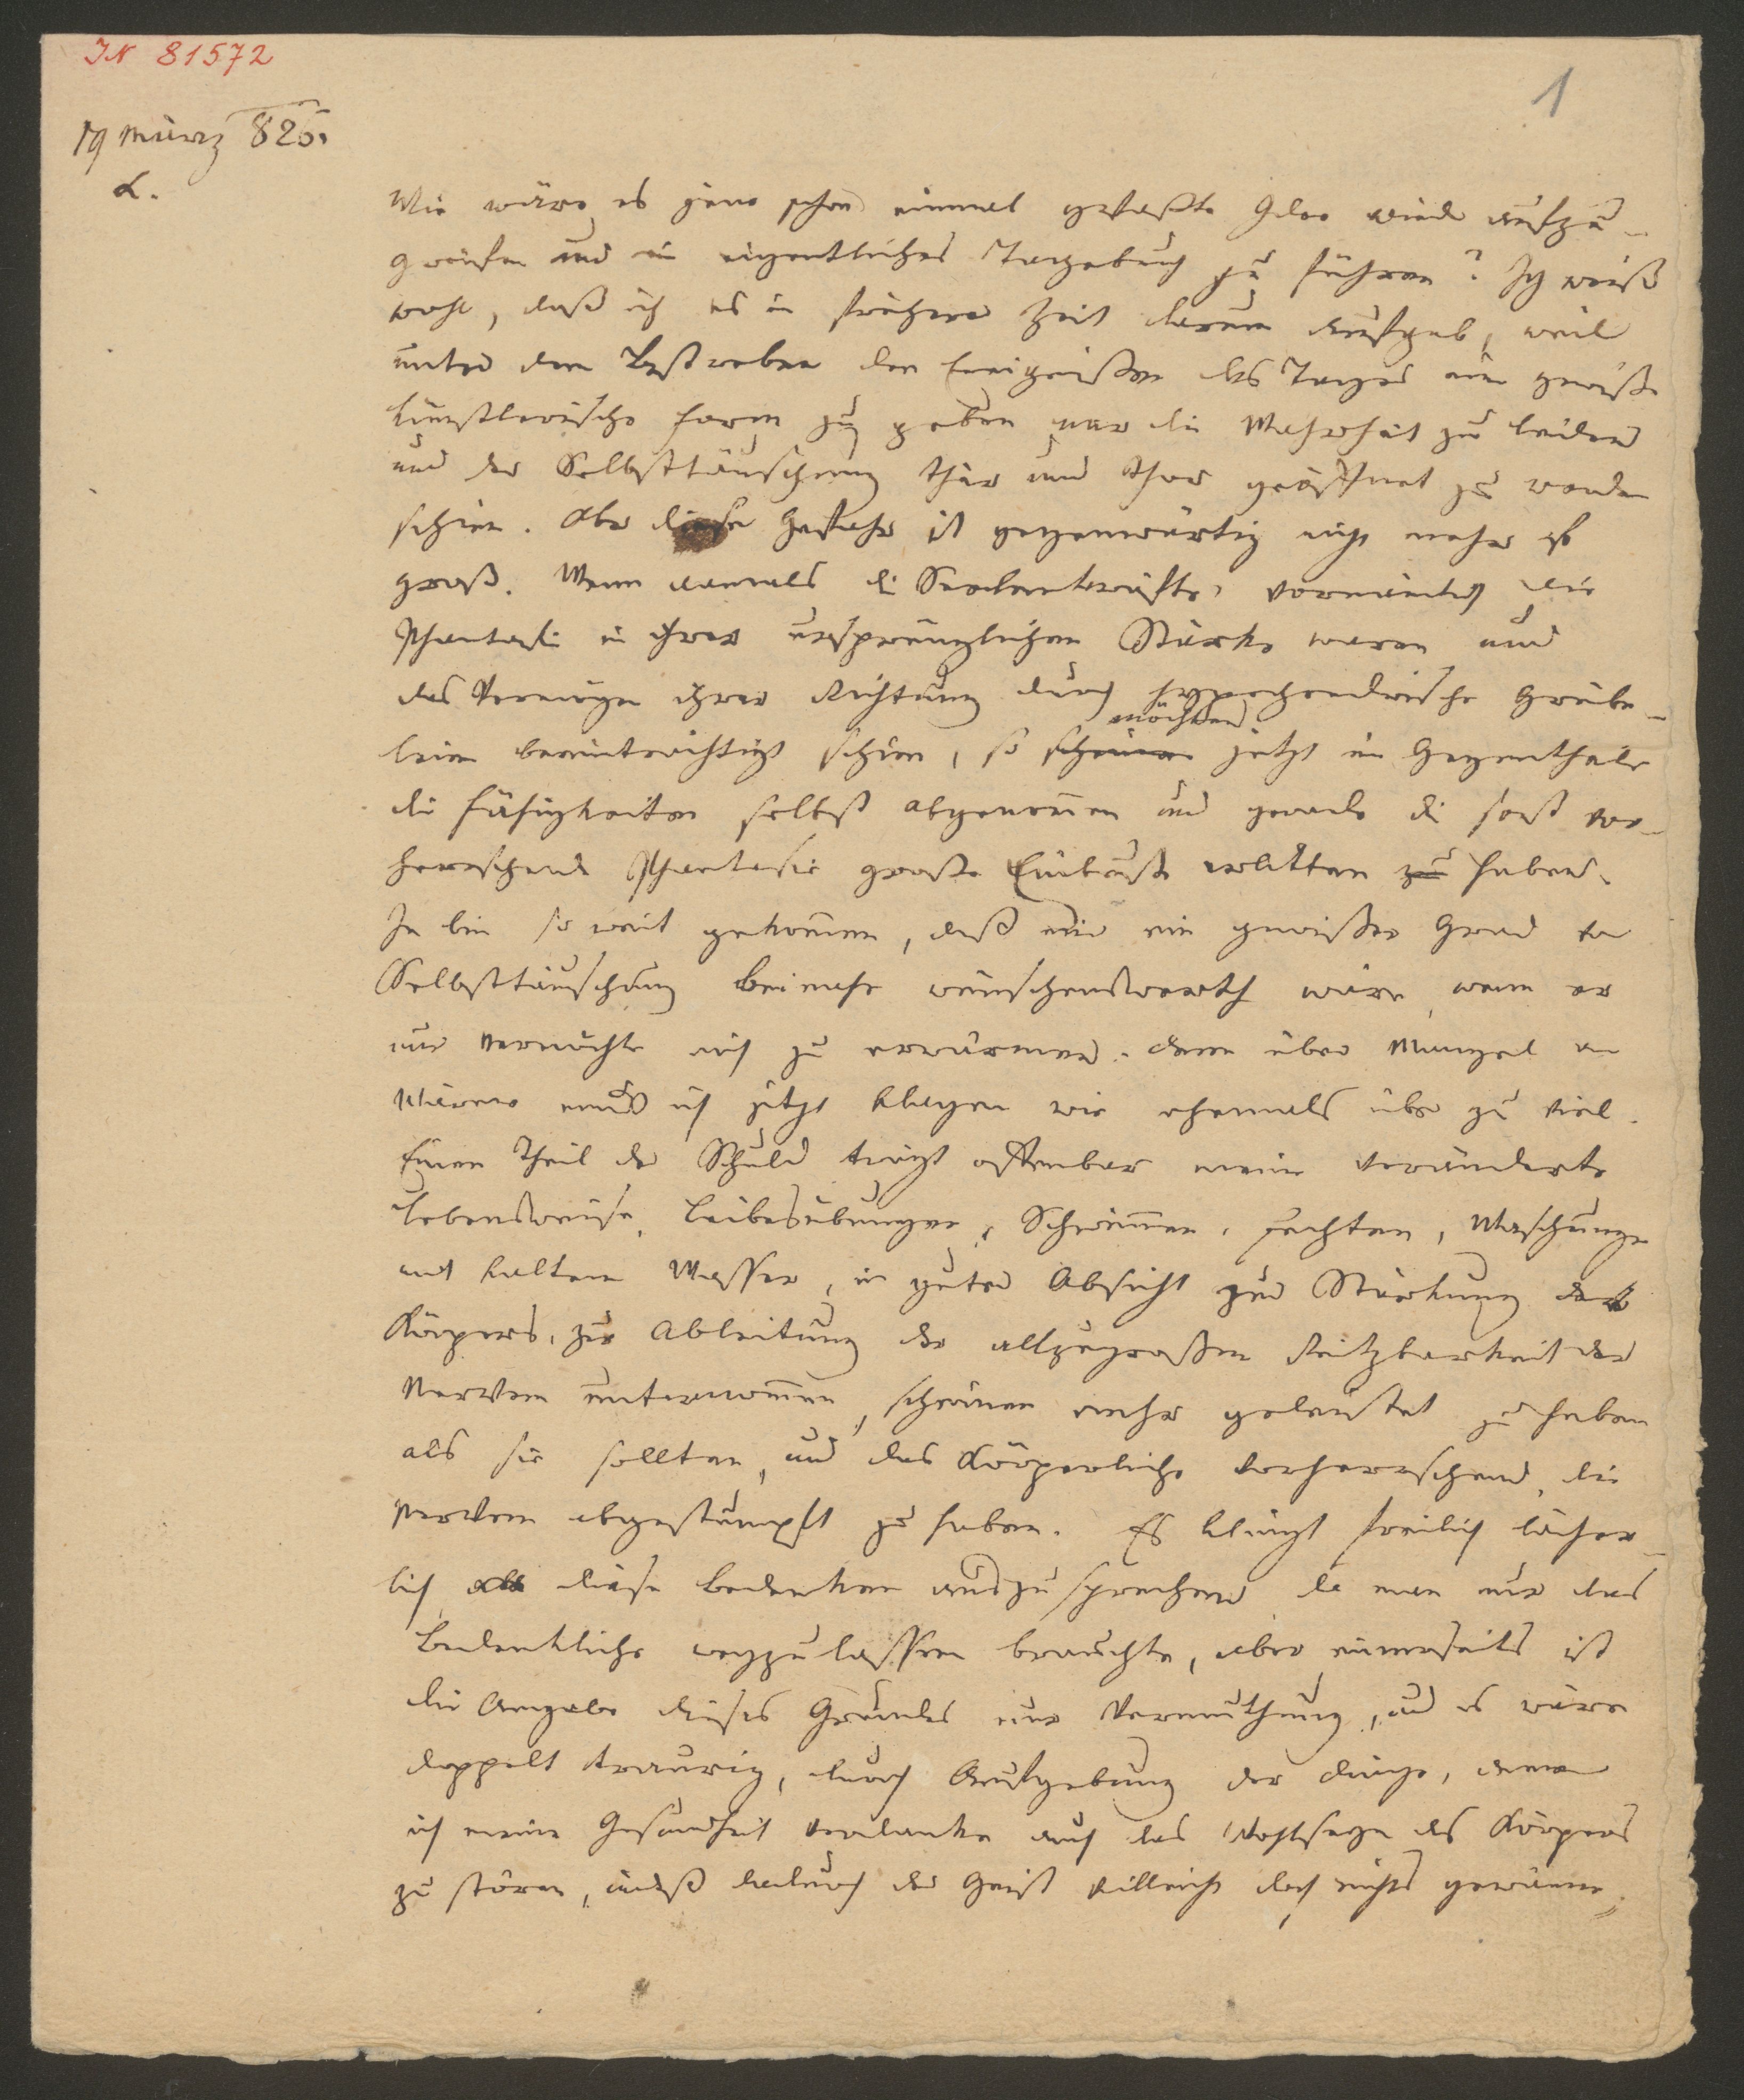 IN 81572
1
19 März 826.
L.
Wie wäre es jene schon einmal gefaßte Idee wieder aufzu-
greifen und ein eigentliches Tagebuch zu führen? Ich weiß
wohl, daß ich es in früherer Zeit darum aufgab, weil
unter dem Bestreben den Ereignißen des Tages eine gewiße
künstlerische Form zu geben nur die Wahrheit zu leiden
und der Selbsttäuschung Thür und Thor geöffnet zu werden
schien. Aber diese Gefahr ist gegenwärtig nicht mehr so
groß. Wenn damals die Seelenkräfte, vornämlich die
Phantasie in ihrer ursprünglichen Stärke waren und
das Vermögen ihrer Richtung durch hypochondrische Grübe-
möchten
leien beeinträchtigt schien, so scheinen jetzt im Gegentheile
die Fähigkeiten selbst abgenommen und gerade die sonst vor-
herrschende Phantasie große Einbuße erlitten zu haben.
Ja bin so weit gekommen, daß mir ein gewißer Grad von
Selbsttäuschung beinahe wünschenswerth wäre, wenn er
nur vermöchte mich zu erwärmen. denn über Mangel an
Wärme muß ich jetzt klagen wie ehemals über zu viel.
Einen Theil der Schuld trägt offenbar meine veränderte
Lebensweise, Leibesübungen, Schwimmen, Fechten, Waschungen
mit kaltem Wasser, in guter Absicht zur Stärkung des
Körpers, zur Ableitung der allzugroßen Reitzbarkeit der
Nerven unternommen, scheinen mehr geleistet zu haben
als sie sollten, und das Körperliche vorherrschend, die
Nerven abgestumpft zu haben. Es klingt freilich lächer-
lich all diese Bedenken auszusprechen da man nur das
Bedenkliche wegzulassen brauchte, aber einerseits ist
die Angabe dieses Grundes nur Vermuthung, und es wäre
doppelt traurig, durch Aufgebung der Dinge, denen
ich meine Gesundheit verdanke auch das Wohlseyn des Körpers
zu stören, indeß dadurch der Geist vielleicht doch nichts gewänne.